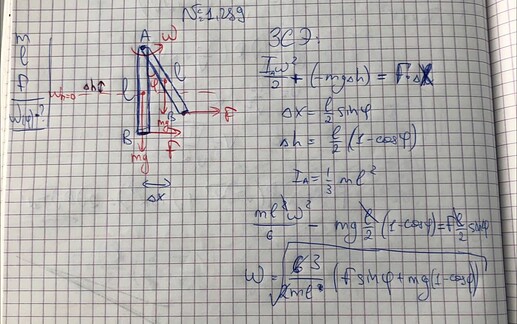 №1.289
m
l
F
ω(φ)=?
A
ω
Δh
ω₀=0
l
φ
l
mg
B
F
B
F
mg
Δx
ЗСЭ:
I_Aω²/2 + (-mgΔh) = F·Δx
Δx = l/2 sinφ
Δh = l/2 (1-cosφ)
I_A = 1/3 ml²
ml²ω²/6 - mg l/2 (1-cosφ) = F l/2 sinφ
ω = √(3/ml (F sinφ + mg(1-cosφ)))